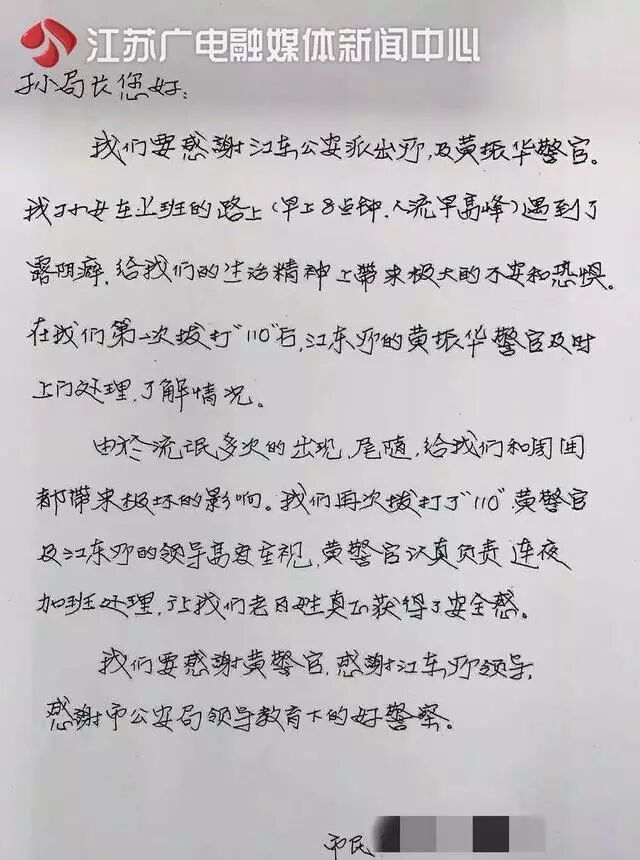 江苏广电融媒体新闻中心
孙局长您好:
我们要感謝江东公安派出所,及黄振华警官。
我孙女在上班的路上(早上8点钟,人流早高峰)遇到了
露阴癖,给我们的生活精神上带来极大的不安和恐惧。
在我们第一次拨打"110"后,江东所的黄振华警官及时
上门处理,了解情况。
由於流氓多次的出现,尾随,给我们和周围
都带来极坏的影响。我们再次拨打了"110",黄警官
及江东所的领导高度重视,黄警官认真负责 连夜
加班处理,让我们老百姓真正获得了安全感。
我们要感謝黄警官,感謝江东所领导,
感謝市公安局领导教育下的好警察。
市民